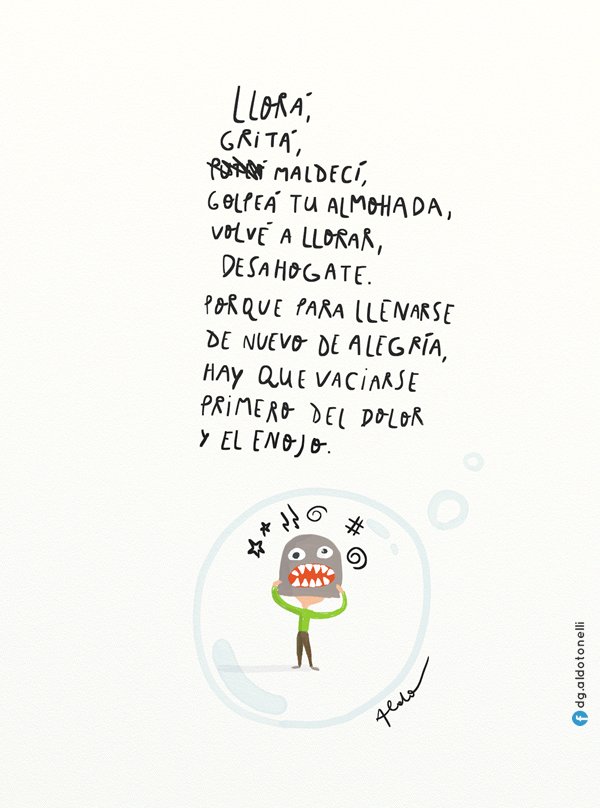 LLORÁ,
GRITÁ,
MALDECÍ,
GOLPEÁ TU ALMOHADA,
VOLVÉ A LLORAR,
DESAHOGATE.
PORQUE PARA LLENARSE
DE NUEVO DE ALEGRÍA,
HAY QUE VACIARSE
PRIMERO DEL DOLOR
Y EL ENOJO.
#
Aldo
f dg.aldotonelli